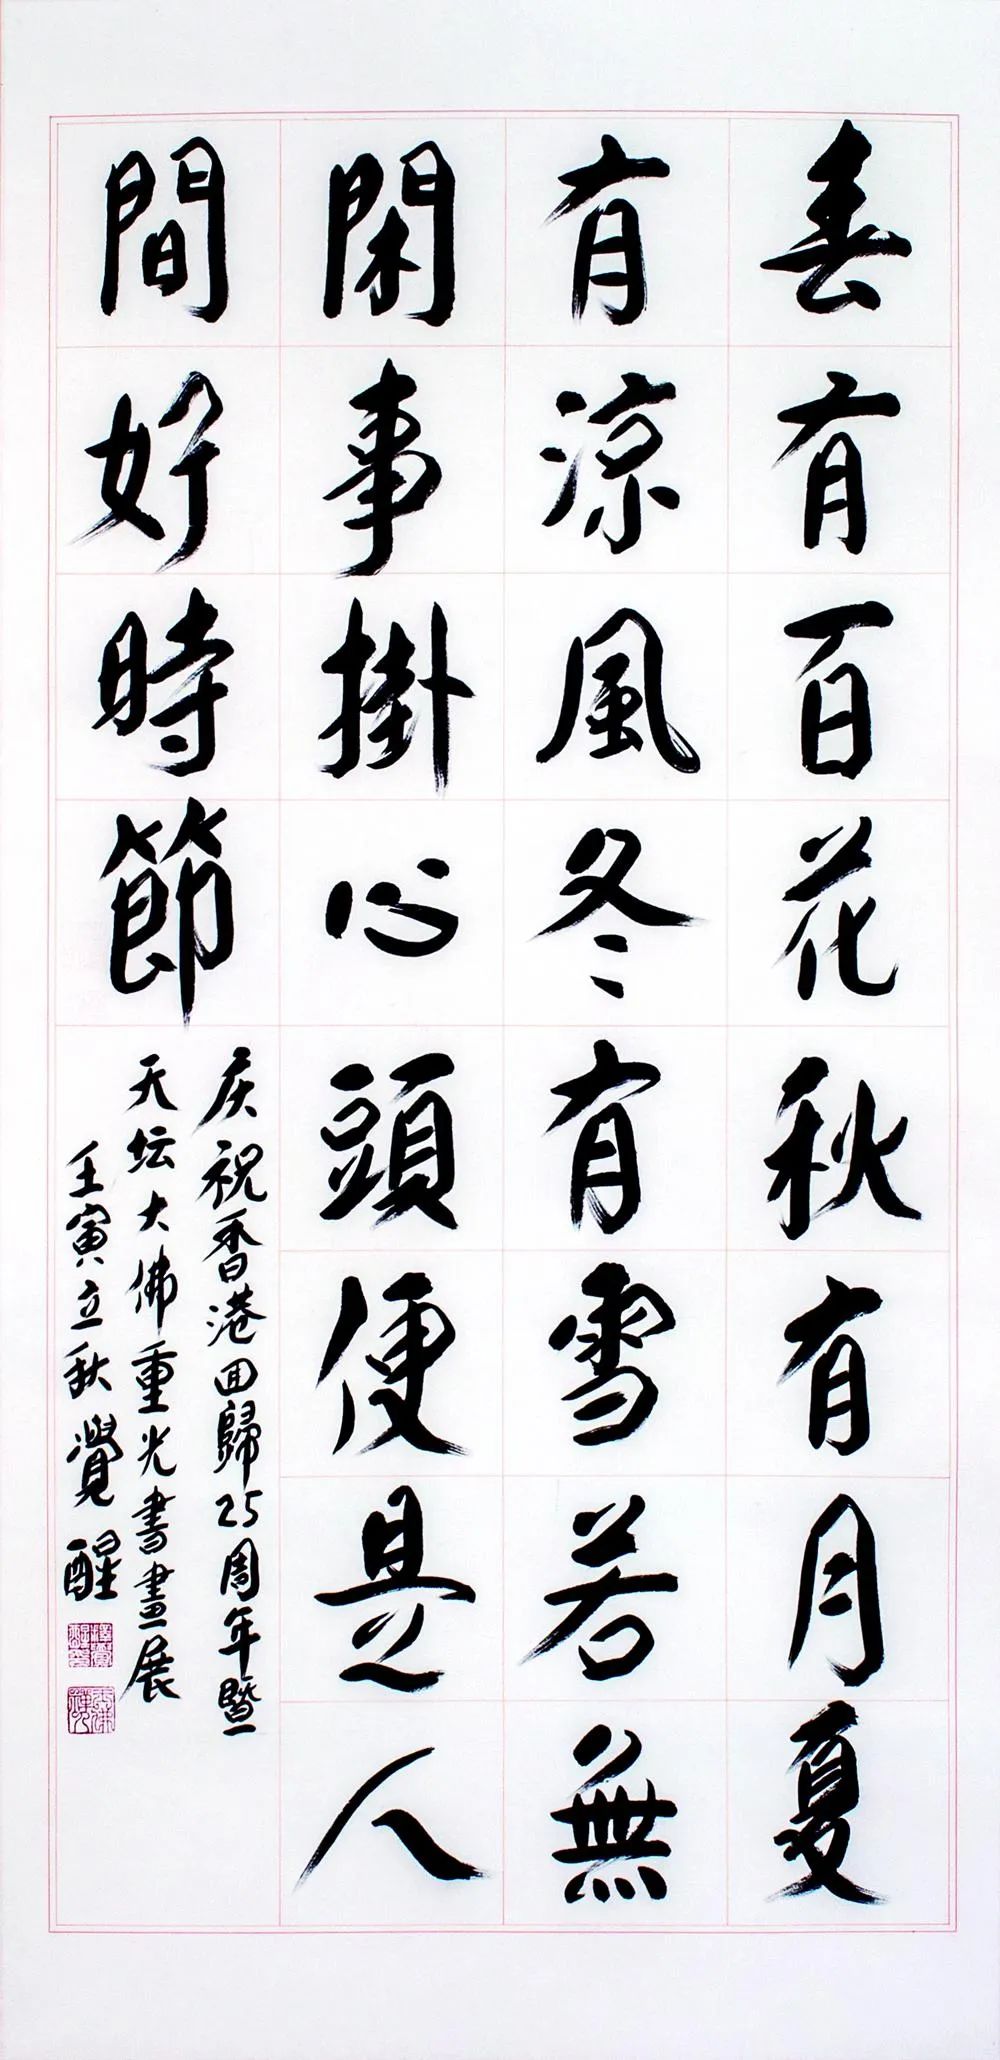 春有百花秋有月夏
有涼風冬有雪若無
閑事掛心頭便是人
間好時節
庆祝香港回歸25周年暨
天坛大佛重光書畫展
壬寅立秋 覺醒